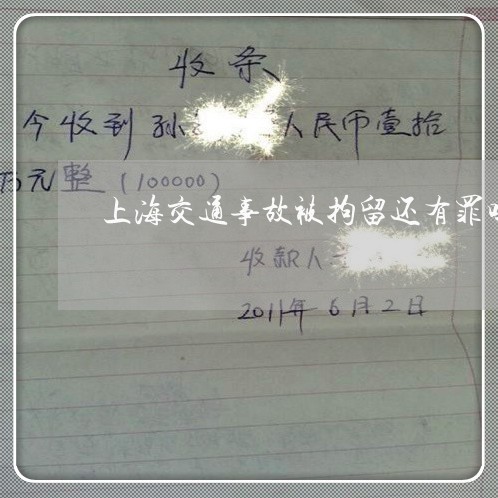 收条
今收到孙 人民币壹拾
万元整（100000）
上海交通事故被拘留还有罪
收款人
2011年6月2日